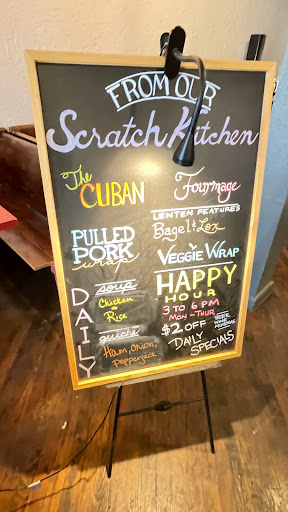 FROM OUR
Scratch Kitchen
The
CUBAN
PULLED
PORK
wrap
DAILY
soup
Chicken
&
Rice
quiche
Ham, Onion,
Pepperjack
Fourmage
LENTEN FEATURES
Bagel & Lox
VEGGIE WRAP
HAPPY
HOUR
3 TO 6 PM
MON - THUR
$2 OFF
BEER
WINE
MIMOSAS
DAILY
SPECIALS